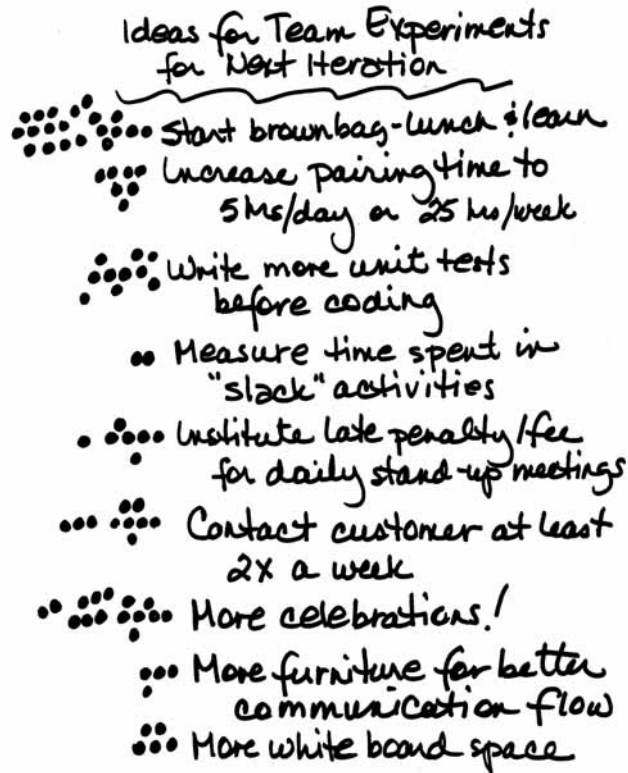 Ideas for Team Experiments
for Next Iteration
Start brownbag-lunch & learn
Increase pairing time to
5 hrs/day or 25 hrs/week
Write more unit tests
before coding
Measure time spent in
"slack" activities
Institute late penalty/fee
for daily stand-up meetings
Contact customer at least
2x a week
More celebrations!
More furniture for better
communication flow
More white board space